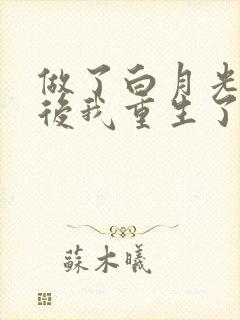 做了白月光
後我重生了
蘇木曦